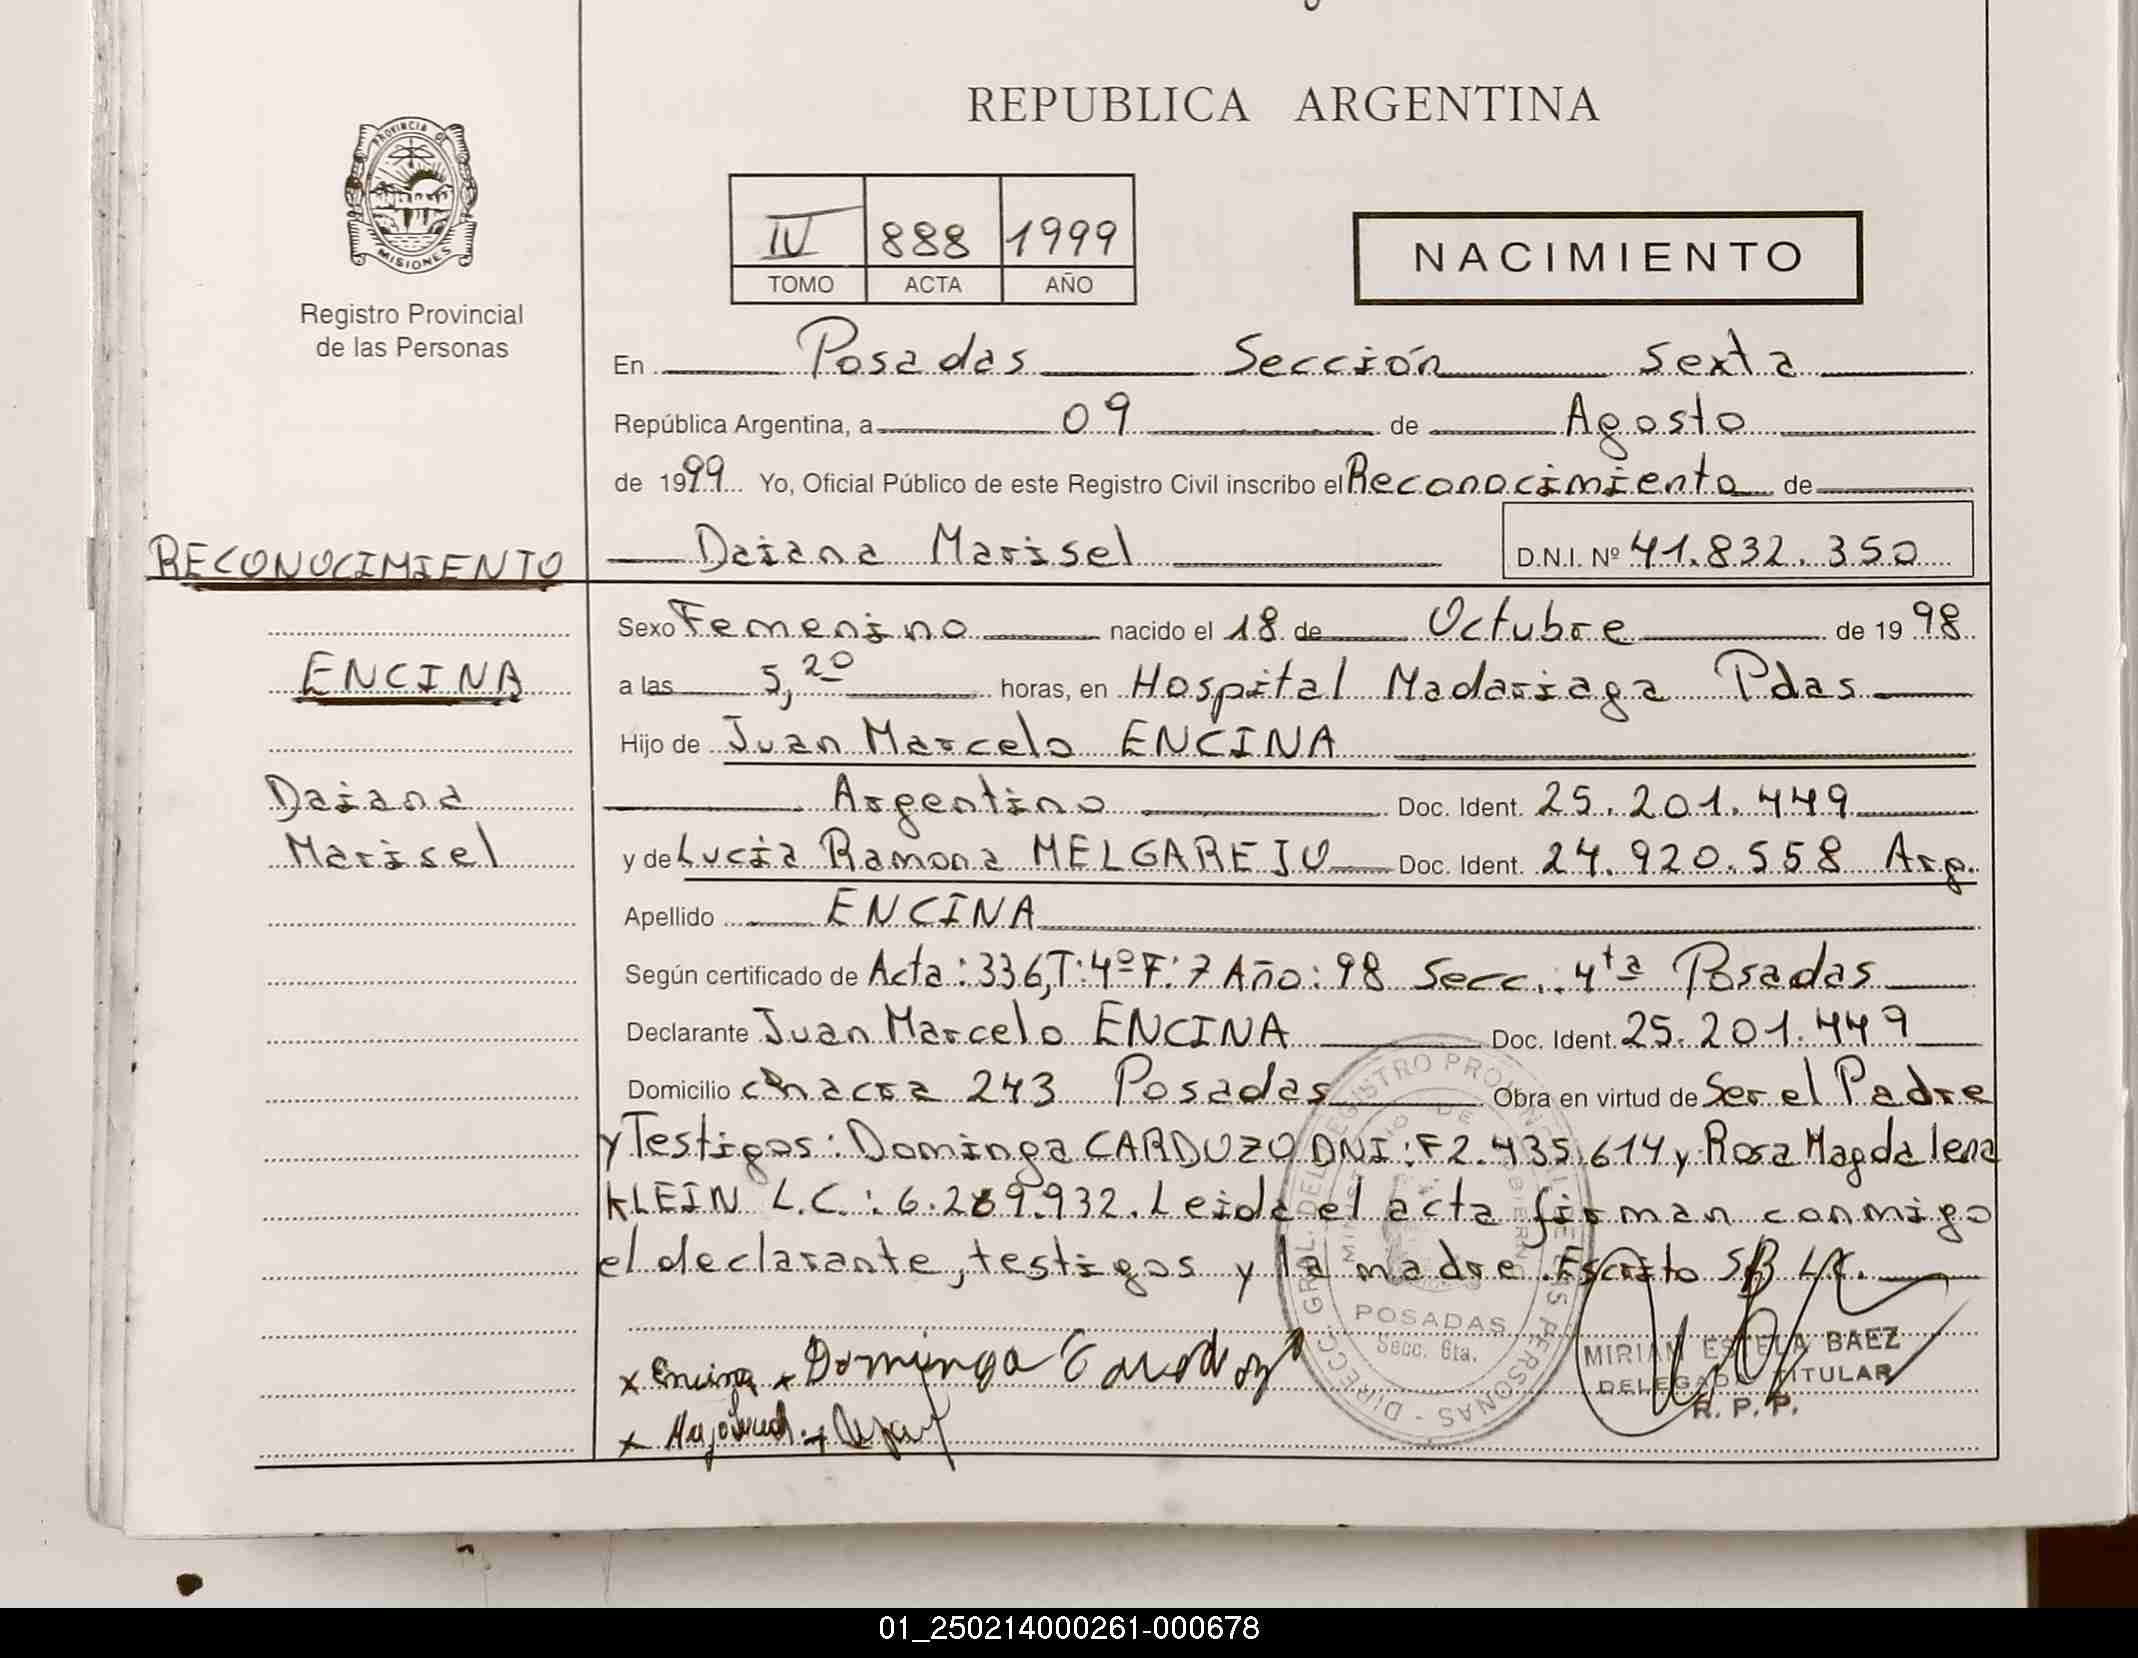 REPUBLICA ARGENTINA
PROVINCIA DE
MISIONES
Registro Provincial
de las Personas
IV 888 1999
TOMO ACTA AÑO
NACIMIENTO
En Posadas Sección Sexta
República Argentina, a 09 de Agosto
de 1999 Yo, Oficial Público de este Registro Civil inscribo el Reconocimiento de
RECONOCIMIENTO
Daiana Marisel D.N.I. Nº 41.832.350
Sexo Femenino nacido el 18 de Octubre de 1998
ENCINA
a las 5,20 horas, en Hospital Madariaga Pdas
Hijo de Juan Marcelo ENCINA
Daiana
Argentino Doc. Ident. 25.201.449
Marisel
y de Lucia Ramona MELGAREJO Doc. Ident. 24.920.558 Arg.
Apellido ENCINA
Según certificado de Acta: 336, T: 4º F: 7 Año: 98 Secc.: 4ta Posadas
Declarante Juan Marcelo ENCINA Doc. Ident. 25.201.449
Domicilio chacra 243 Posadas Obra en virtud de Ser el Padre
y Testigos: Dominga CARDOZO DNI: F2.435.614 y Rosa Magdalena
KLEIN L.C.: 6.269.932. Leida el acta firman conmigo
el declarante, testigos y la madre. Escrito SB LC.
DIRECC. GRAL. DEL REGISTRO PROVINCIAL DE LAS PERSONAS
MINISTERIO DE GOBIERNO
POSADAS
Secc. 6ta.
x Encina x Dominga Cardozo
MIRIAM ESTELA BAEZ
DELEGADA TITULAR
R. P. P.
01_250214000261-000678